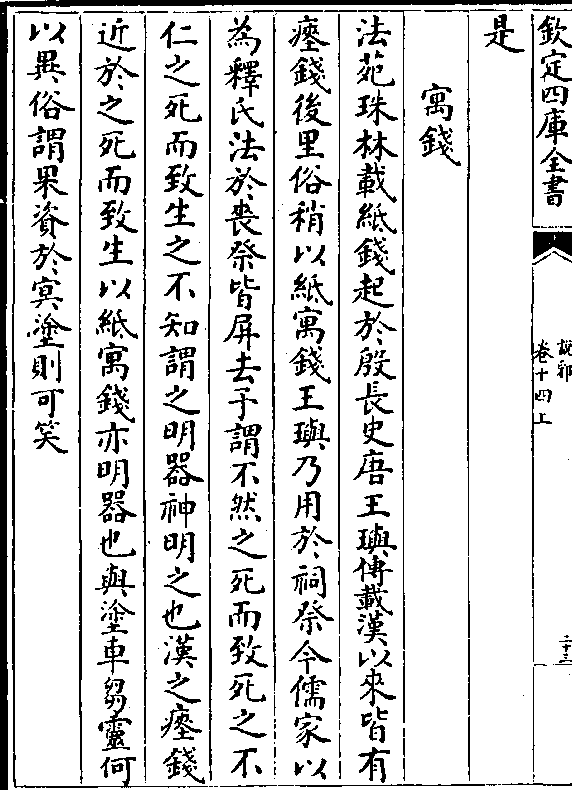 欽定四庫全書
說郛
卷十四上
二十三
是
寓錢
法苑珠林載紙錢起於殷長史唐王璵傳載漢以來皆有
瘞錢後里俗稍以紙寓錢王璵乃用於祠祭今儒家以
為釋氏法於喪祭皆屏去予謂不然之死而致死之不
仁之死而致生之不知謂之明器神明之也漢之瘞錢
近於之死而致生以紙寓錢亦明器也與塗車芻靈何
以異俗謂果資於㝠塗則可笑